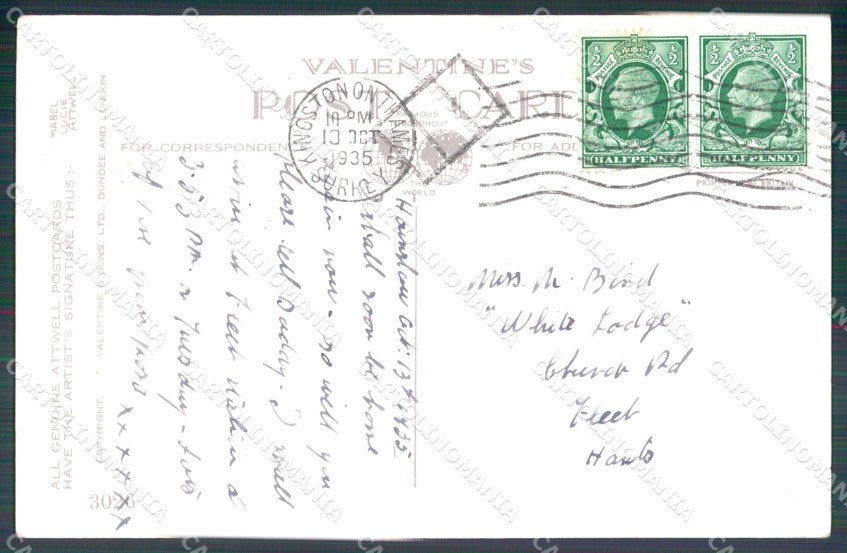 VALENTINE'S
POST CARD
FAMOUS THROUGHOUT
THE WORLD
FOR CORRESPONDENCE
KINGSTON ON THAMES
10 PM
13 OCT
1935
SURREY
1/2 1/2
HALFPENNY
1/2 1/2
HALFPENNY
Hounslow Oct: 13th 1935
I shall soon be home
again now - so will you
please tell Daddy - I shall
arrive at Fleet station at
3.53 P.M. on Tuesday -
x x x x x x
Miss. M. Bird
"White Lodge"
Church Rd
Fleet
Hants
ALL GENUINE ATTWELL POSTCARDS
HAVE THE ARTIST'S SIGNATURE THUS:-
MABEL
LUCIE
ATTWELL
COPYRIGHT. VALENTINE & SONS, LTD., DUNDEE AND LONDON
3026
CARTOLINOMANIA